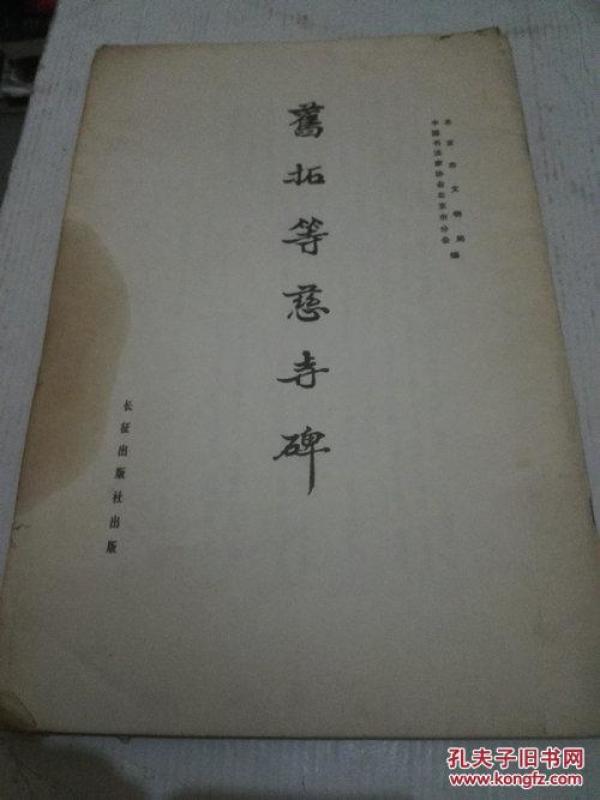 北京市文物局
中国书法家协会北京市分会 编
舊拓等慈寺碑
长征出版社出版
孔夫子旧书网
www.kongfz.com